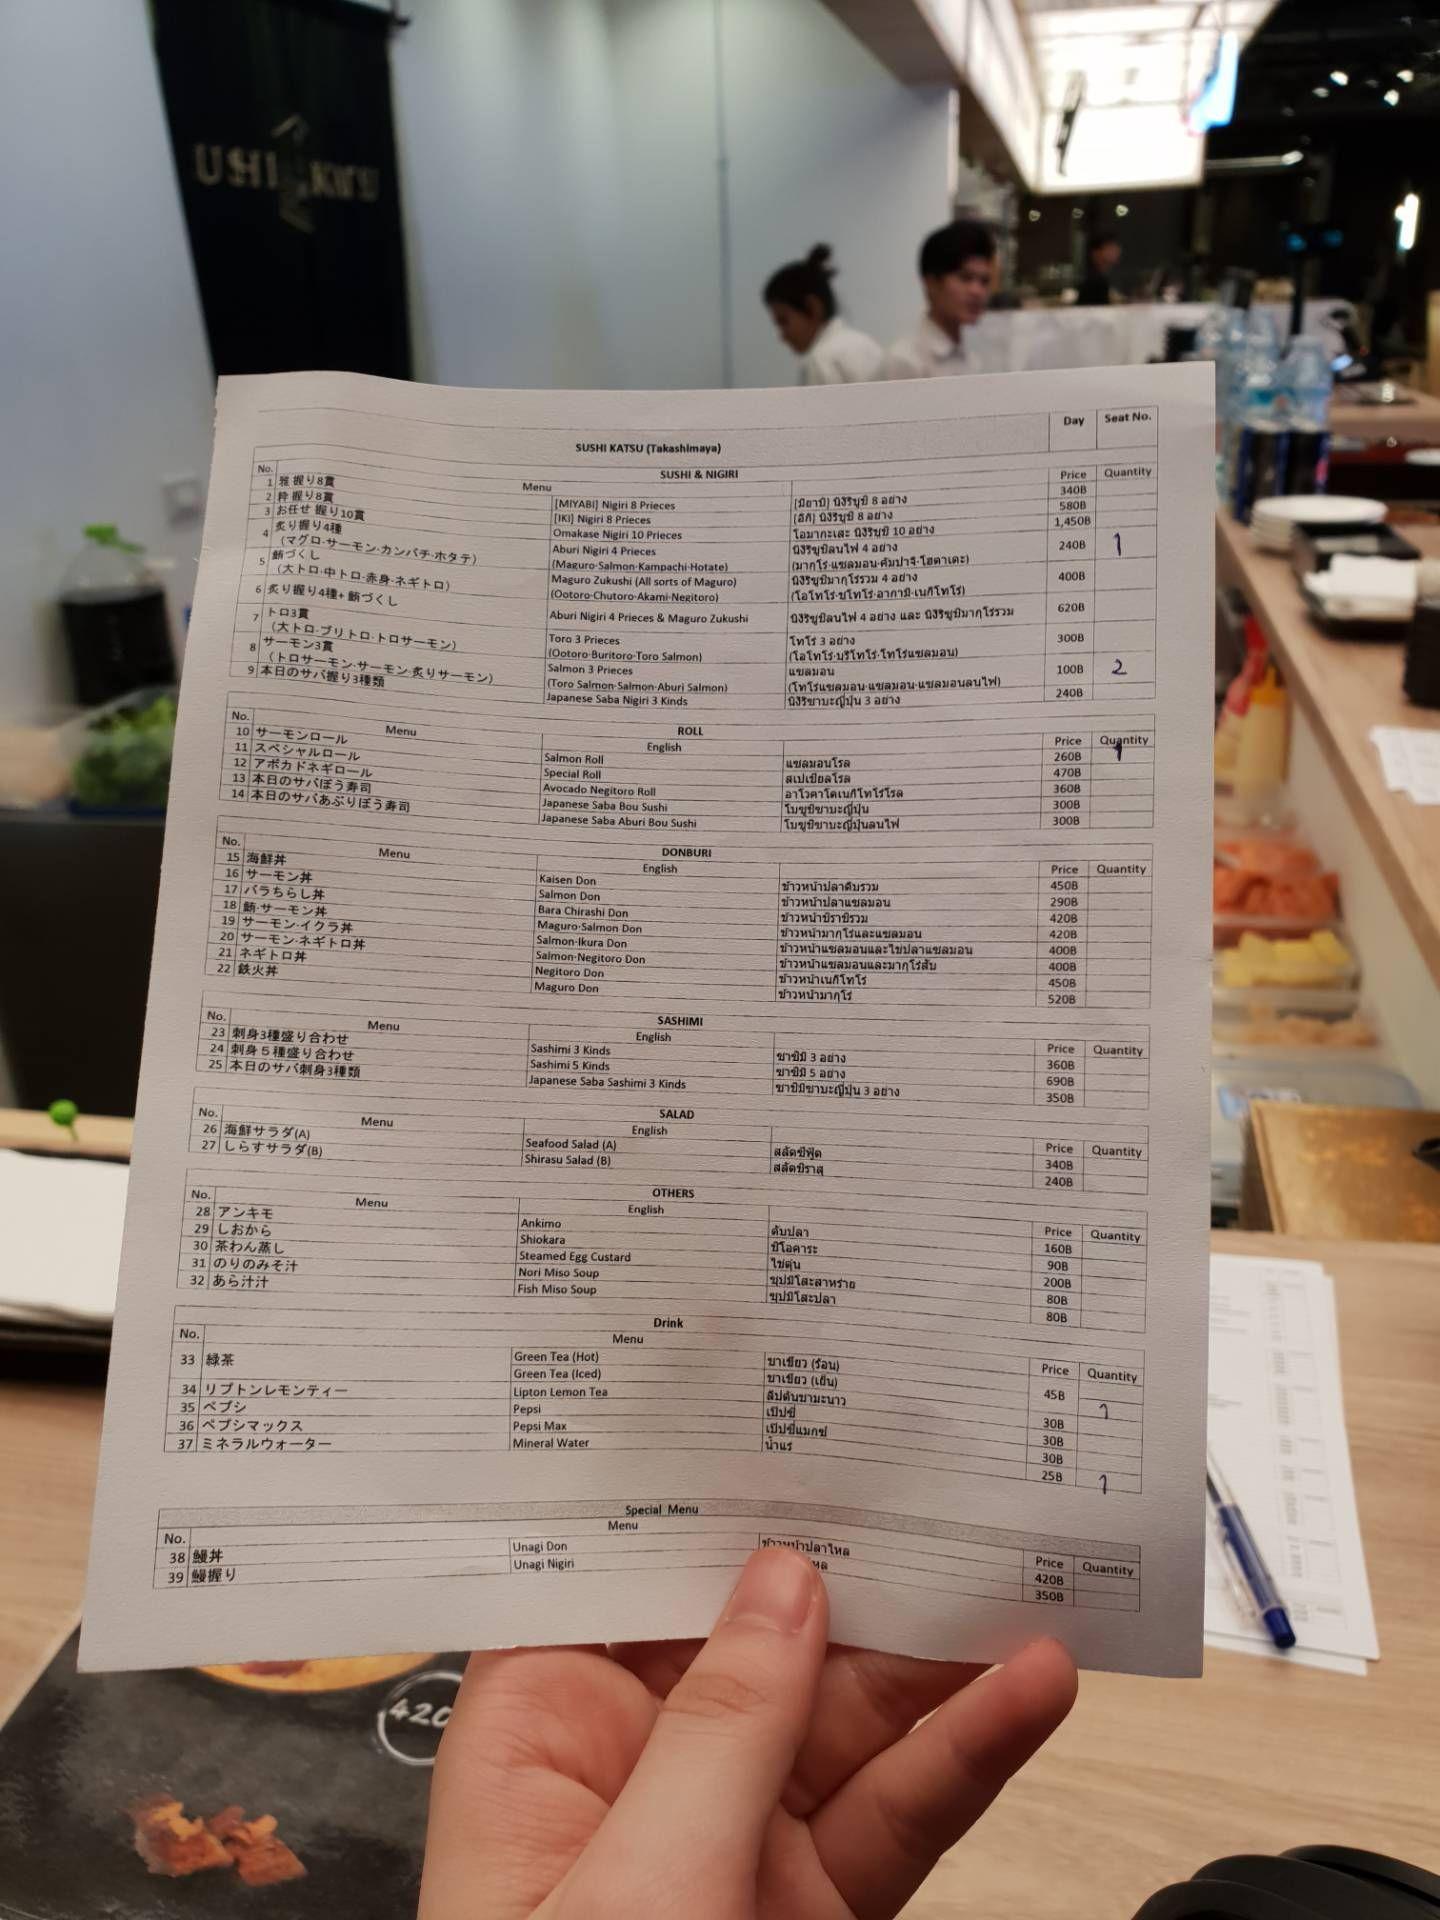 SUSHI KATSU (Takashimaya) Day Seat No.
SUSHI & NIGIRI
No. Menu Price Quantity
1 雅 握り8貫 [MIYABI] Nigiri 8 Prieces [มิยาบิ] นิงิริซูชิ 8 อย่าง 340B
2 粋 握り8貫 [IKI] Nigiri 8 Prieces [อิกิ] นิงิริซูชิ 8 อย่าง 580B
3 お任せ 握り10貫 Omakase Nigiri 10 Prieces โอมากะเสะ นิงิริซูชิ 10 อย่าง 1,450B
4 炙り握り4種 Aburi Nigiri 4 Prieces นิงิริซูชิลนไฟ 4 อย่าง 240B 1
(マグロ·サーモン·カンパチ·ホタテ) (Maguro·Salmon·Kampachi·Hotate) (มากุโร่·แซลมอน·คัมปาจิ·โฮตาเตะ)
5 鮪づくし Maguro Zukushi (All sorts of Maguro) นิงิริซูชิมากุโร่รวม 4 อย่าง 400B
(大トロ·中トロ·赤身·ネギトロ) (Ootoro·Chutoro·Akami·Negitoro) (โอโทโร่·ชูโทโร่·อากามิ·เนกิโทโร่)
6 炙り握り4種+ 鮪づくし Aburi Nigiri 4 Prieces & Maguro Zukushi นิงิริซูชิลนไฟ 4 อย่าง และ นิงิริซูชิมากุโร่รวม 620B
7 トロ3貫 Toro 3 Prieces โทโร่ 3 อย่าง 300B
(大トロ·ブリトロ·トロサーモン) (Ootoro·Buritoro·Toro Salmon) (โอโทโร่·บุริโทโร่·โทโร่แซลมอน)
8 サーモン3貫 Salmon 3 Prieces แซลมอน 100B 2
(トロサーモン·サーモン·炙りサーモン) (Toro Salmon·Salmon·Aburi Salmon) (โทโร่แซลมอน·แซลมอน·แซลมอนลนไฟ)
9 本日のサバ握り3種類 Japanese Saba Nigiri 3 Kinds นิงิริซาบะญี่ปุ่น 3 อย่าง 240B
ROLL
No. Menu English Price Quantity
10 サーモンロール Salmon Roll แซลมอนโรล 260B 1
11 スペシャルロール Special Roll สเปเชียลโรล 470B
12 アボカドネギロール Avocado Negitoro Roll อาโวคาโดเนกิโทโร่โรล 360B
13 本日のサバぼう寿司 Japanese Saba Bou Sushi โบซูชิซาบะญี่ปุ่น 300B
14 本日のサバあぶりぼう寿司 Japanese Saba Aburi Bou Sushi โบซูชิซาบะญี่ปุ่นลนไฟ 300B
DONBURI
No. Menu English Price Quantity
15 海鮮丼 Kaisen Don ข้าวหน้าปลาดิบรวม 450B
16 サーモン丼 Salmon Don ข้าวหน้าปลาแซลมอน 290B
17 バラちらし丼 Bara Chirashi Don ข้าวหน้าชิราชิรวม 420B
18 鮪·サーモン丼 Maguro·Salmon Don ข้าวหน้ามากุโร่และแซลมอน 420B
19 サーモン·イクラ丼 Salmon·Ikura Don ข้าวหน้าแซลมอนและไข่ปลาแซลมอน 400B
20 サーモン·ネギトロ丼 Salmon·Negitoro Don ข้าวหน้าแซลมอนและมากุโร่สับ 400B
21 ネギトロ丼 Negitoro Don ข้าวหน้าเนกิโทโร่ 450B
22 鉄火丼 Maguro Don ข้าวหน้ามากุโร่ 520B
SASHIMI
No. Menu English Price Quantity
23 刺身3種盛り合わせ Sashimi 3 Kinds ซาชิมิ 3 อย่าง 360B
24 刺身５種盛り合わせ Sashimi 5 Kinds ซาชิมิ 5 อย่าง 690B
25 本日のサバ刺身3種類 Japanese Saba Sashimi 3 Kinds ซาชิมิซาบะญี่ปุ่น 3 อย่าง 350B
SALAD
No. Menu English Price Quantity
26 海鮮サラダ(A) Seafood Salad (A) สลัดซีฟู้ด 340B
27 しらすサラダ(B) Shirasu Salad (B) สลัดชิราสุ 240B
OTHERS
No. Menu English Price Quantity
28 アンキモ Ankimo ตับปลา 160B
29 しおから Shiokara ชิโอคาระ 90B
30 茶わん蒸し Steamed Egg Custard ไข่ตุ๋น 200B
31 のりのみそ汁 Nori Miso Soup ซุปมิโสะสาหร่าย 80B
32 あら汁汁 Fish Miso Soup ซุปมิโสะปลา 80B
Drink
No. Menu Price Quantity
33 緑茶 Green Tea (Hot) ชาเขียว (ร้อน) 45B
Green Tea (Iced) ชาเขียว (เย็น) 1
34 リプトンレモンティー Lipton Lemon Tea ลิปตันชามะนาว 30B
35 ペプシ Pepsi เป๊ปซี่ 30B
36 ペプシマックス Pepsi Max เป๊ปซี่แมกซ์ 30B
37 ミネラルウォーター Mineral Water น้ำแร่ 25B 1
Special Menu
No. Menu Price Quantity
38 鰻丼 Unagi Don ข้าวหน้าปลาไหล 420B
39 鰻握り Unagi Nigiri ไหล 350B
420